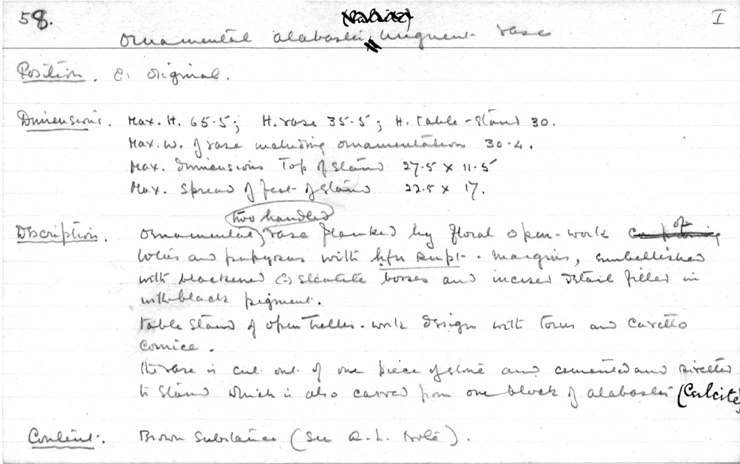 58. (Calcite) I
Ornamental alabaster unguent vase
Position. C; original.
Dimensions. Max. H. 65·5; H. vase 35·5; H. table-stand 30.
Max. W. of vase including ornamentation 30·4.
Max. dimensions Top of Stand 27·5 x 11·5
Max. Spread of feet of Stand 22.5 x 17.
two handled
Description. Ornamental vase flanked by floral open-work of
lotus and papyrus with margins, embellished
with blackened (?) steatite bosses and incised detail filled in
with black pigment.
Table Stand of open trellis-work design with torus and cavetto
cornice.
The vase is cut out of one piece of stone and cemented and rivetted
to Stand which is also carved from one block of alabaster (Calcite)
Content. Brown Substance (See A. L. Note).